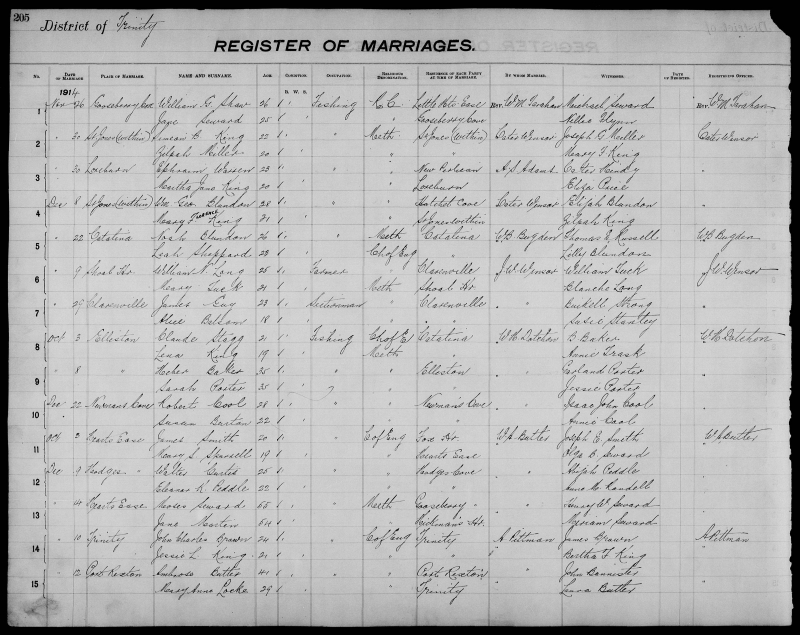 205
District of Trinity
REGISTER OF MARRIAGES.
No. DATE OF MARRIAGE PLACE OF MARRIAGE. NAME AND SURNAME. AGE CONDITION B. W. S. OCCUPATION. RELIGIOUS DENOMINATION. RESIDENCE OF EACH PARTY AT TIME OF MARRIAGE. BY WHOM MARRIED. WITNESSES. DATE OF REGISTRY. REGISTERING OFFICER.
1914
1 Nov 26 Gooseberry Cove William G. Shaw 26 1 Fishing R.C. Little Hts Ease Rev. Wm Michael Seward Rev. Wm
Jane Seward 25 1 " Gooseberry Cove Nellie Flynn
2 " 30 St Jones (within) B King 22 1 " Meth St Jones (within) Oster Winsor Joseph G Miller
Zilpah Miller 20 1 " " Mary F King
3 " 20 Loreburn Ephraim Warren 23 1 " " New Perlican A. S. Adams
Martha Jane King 20 1 " Loreburn Eliza Price
4 Dec 8 St Jones (within) Geo Blundon 28 1 " " Hatchet Cove Elijah Blundon
Mary Florence King 21 1 " St Jones within Zilpah King
5 " 22 Catalina Noah Blundon 26 1 " Meth Catalina W. B. Bugden Thomas E Russell W B Bugden
Leah Sheppard 23 1 Ch of Eng " Lilly Blundon
6 " 9 Shoal Hr William N. Long 25 1 Farmer " Clarenville J. W. Winsor William Tuck J. W. Winsor
Mary Tuck 21 1 Meth Shoal Hr Blanche Long
7 " 29 Clarenville James Guy 23 1 Sectionman " Clarenville " Strong
Alice Balsom 18 1 " " Susie Stanley
8 Oct 3 Elliston Claude Stagg 21 1 Fishing Ch of E Catalina W. H. Dotchon B Baker W. H. Dotchon
Lena King 19 1 Meth " Annie Trask
9 " 8 " Baker 35 1 " " Elliston " Garland Porter
Sarah Porter 35 1 " " Jessie Porter
10 Dec 22 Newmans Cove Robert Cool 28 1 " " Newman's Cove " Isaac John Cool
Burton 22 1 " " Annie Cool
11 Oct 3 Hearts Ease James Smith 20 1 C of Eng Fox Hr. W. A. Butler Joseph E. Smith W A Butler
S. Spurrell 19 1 " Hearts Ease B. Seward
12 Dec 9 Hodges " Walter Curtis 25 1 " " Hodges Cove " Peddle
Eleanor K Peddle 22 1 " " Anne M. Randell
13 " 14 Hearts Ease Moses Seward 55 1 " Meth Gooseberry " " Henry W. Seward
Jane Martin 54 1 " Hickman's Hr. Miriam Seward
14 " 10 Trinity John Charles Brown 24 1 " C of Eng Trinity A Pittman James Brown A Pittman
Jessie L King 21 1 " " Bertha F King
15 " 12 Port Rexton Ambrose Butler 41 1 " " Port Rexton " John Bannister
Mary Anna Locke 29 1 " Trinity Laura Butler